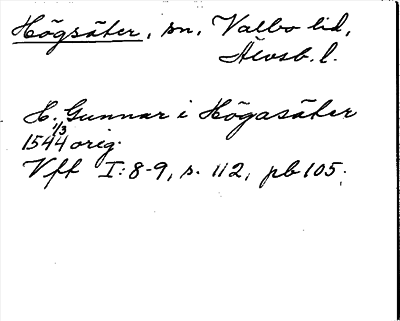 Högsäter, sn, Valbo hd,
Älvsb. l.
H. Gunnar i Högasäter
1544 1/3 orig.
Vft I: 8-9, s. 112, pb 105.